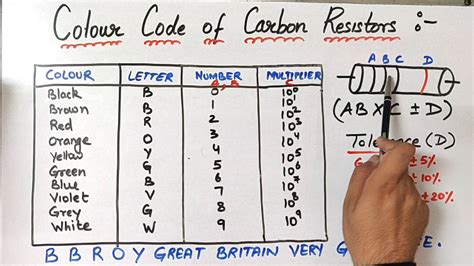 Colour Code of Carbon Resistors :-
COLOUR LETTER NUMBER MULTIPLIER
A, B C
Black B 0 10⁰
Brown B 1 10¹
Red R 2 10²
Orange O 3 10³
Yellow Y 4 10⁴
Green G 5 10⁵
Blue B 6 10⁶
Violet V 7 10⁷
Grey G 8 10⁸
White W 9 10⁹
A B C D
(AB X C ± D)
Tolerance (D)
G ± 5%
10%
± 20%
B B R O Y GREAT BRITAIN VERY G